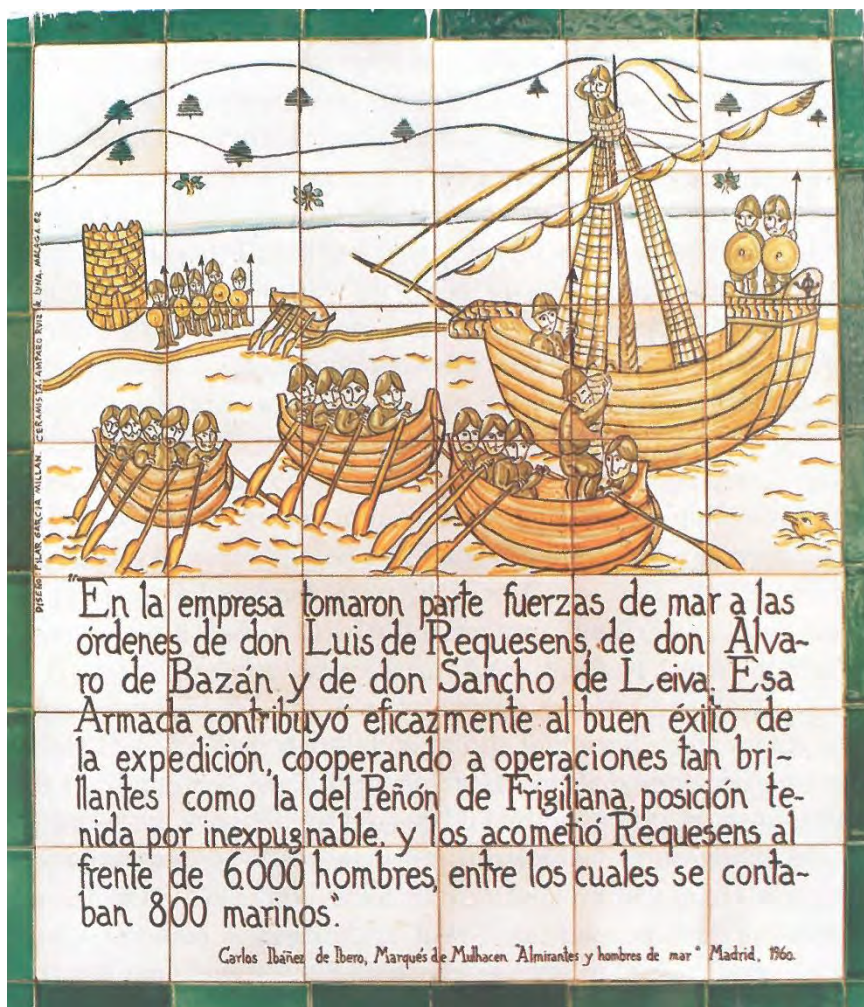 DISEÑO: PILAR GARCIA MILLAN. CERAMISTA: AMPARO RUIZ de LUNA. MALAGA 82
"En la empresa tomaron parte fuerzas de mar a las
órdenes de don Luis de Requesens, de don Álva-
ro de Bazán y de don Sancho de Leiva. Esa
Armada contribuyó eficazmente al buen éxito de
la expedición, cooperando a operaciones tan bri-
llantes como la del Peñón de Frigiliana, posición te-
nida por inexpugnable, y los acometió Requesens al
frente de 6.000 hombres, entre los cuales se conta-
ban 800 marinos".
Carlos Ibáñez de Ibero, Marqués de Mulhacen "Almirantes y hombres de mar" Madrid, 1960.